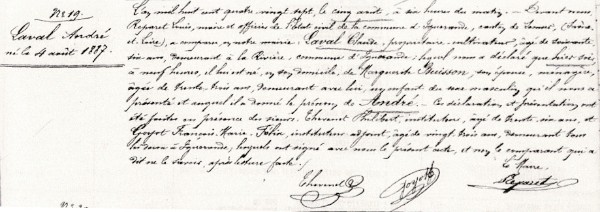 N° 19.
Laval André
né le 4 août 1887.
L'an mil huit cent quatre vingt sept, le cinq août, à six heures du matin. Devant nous
Reparet Louis, maire et officier de l'état civil de la commune d'Iguerande, canton de Semur, (Saône
et Loire), a comparu, en notre mairie, Laval Claude, propriétaire, cultivateur, âgé de
six ans, demeurant à la Rivière, commune d'Iguerande; lequel nous a déclaré que hier soir
à neuf heures, il lui est né, en son domicile, de Marguerite, son épouse, ménagère,
âgée de trente trois ans, demeurant avec lui, un enfant du sexe masculin qu'il nous a
présenté et auquel il a donné le prénom de André. Ces déclaration et présentation ont
été faites en présence des sieurs Thevenet Philibert, instituteur, âgé de trente six ans, et
Goyot François Marie Félix, instituteur adjoint, âgé de vingt trois ans, demeurant tous
les deux à Iguerande, lesquels ont signé avec nous le présent acte, et non le comparant qui a
dit ne le savoir, après lecture faite.
Le Maire
Thevenet Goyot Reparet